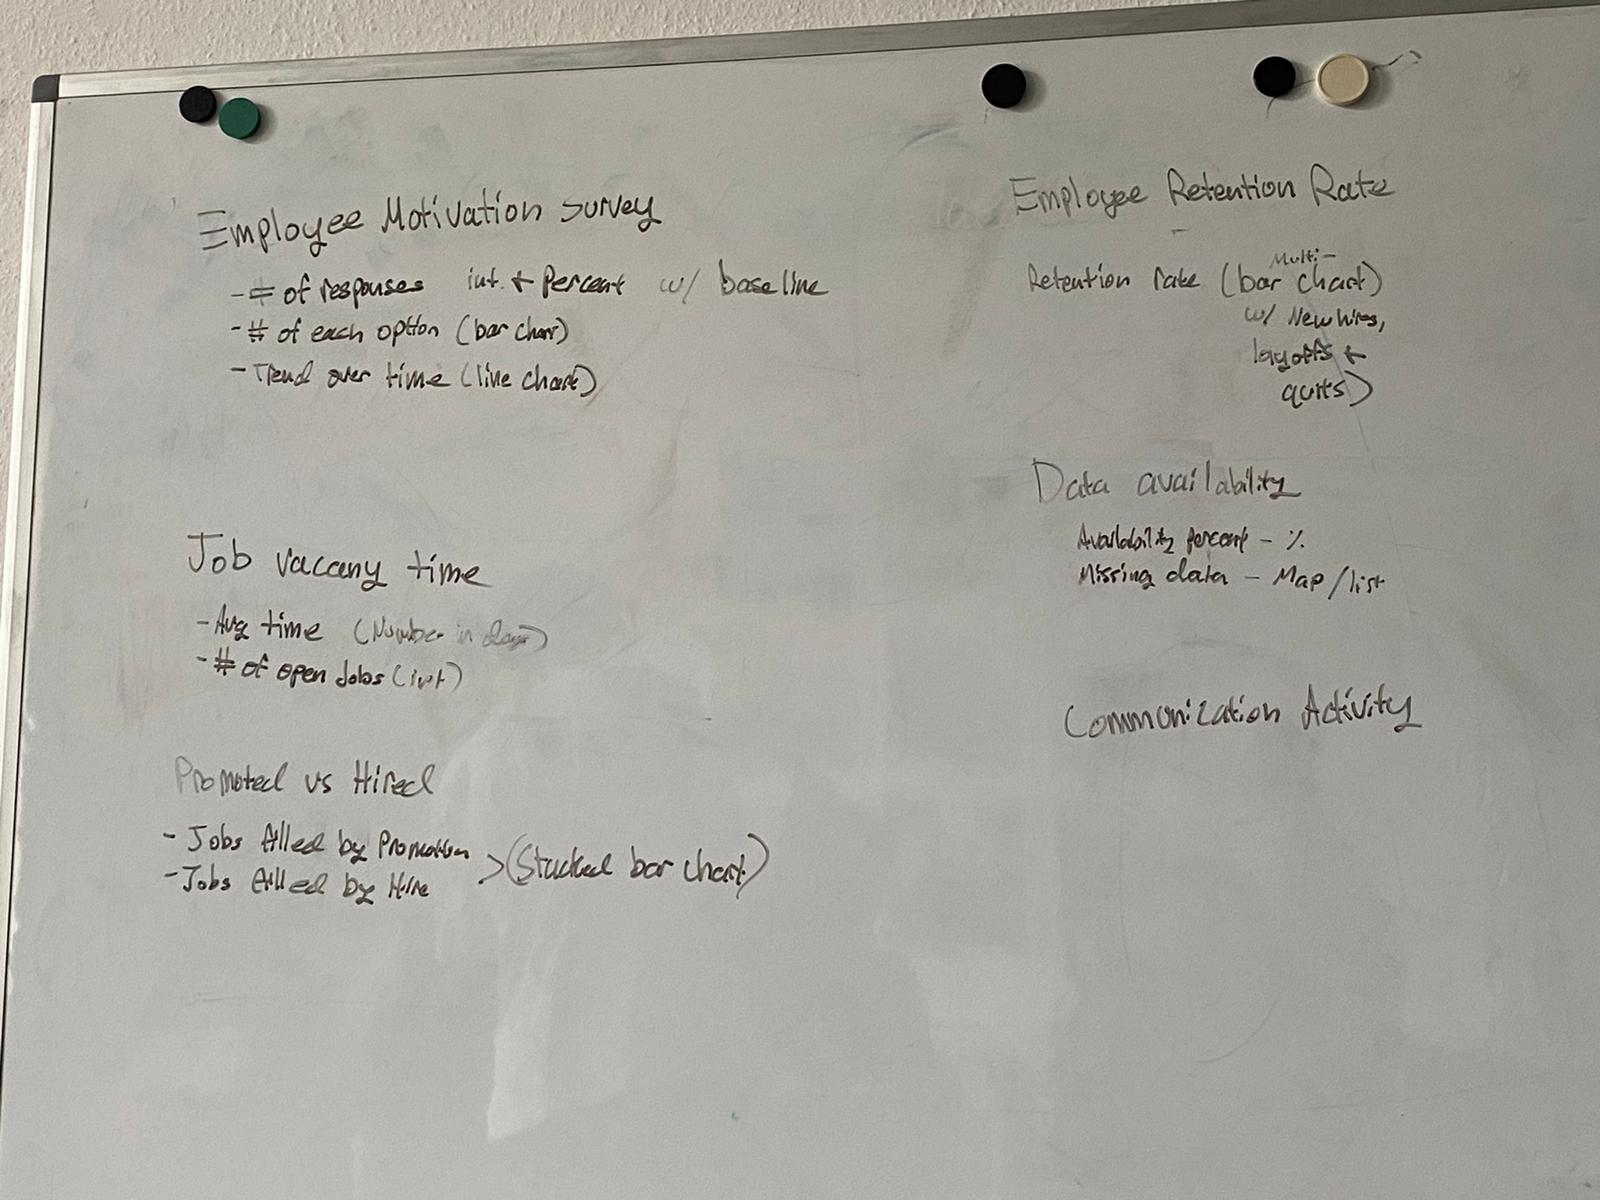 Employee Motivation Survey
- # of responses int. + Percent w/ baseline
- # of each option (bar chart)
- Trend over time (line chart)
Job vacany time
- Avg time (Number in days)
- # of open Jobs (int)
Promoted vs Hired
- Jobs filled by Promotion
- Jobs filled by Hire
> (Stacked bar chart)
Employee Retention Rate
Multi-
Retention rate (bar chart)
w/ New hires,
layoffs +
quits)
Data availability
Availability percent - %
Missing data - Map/list
Communication Activity